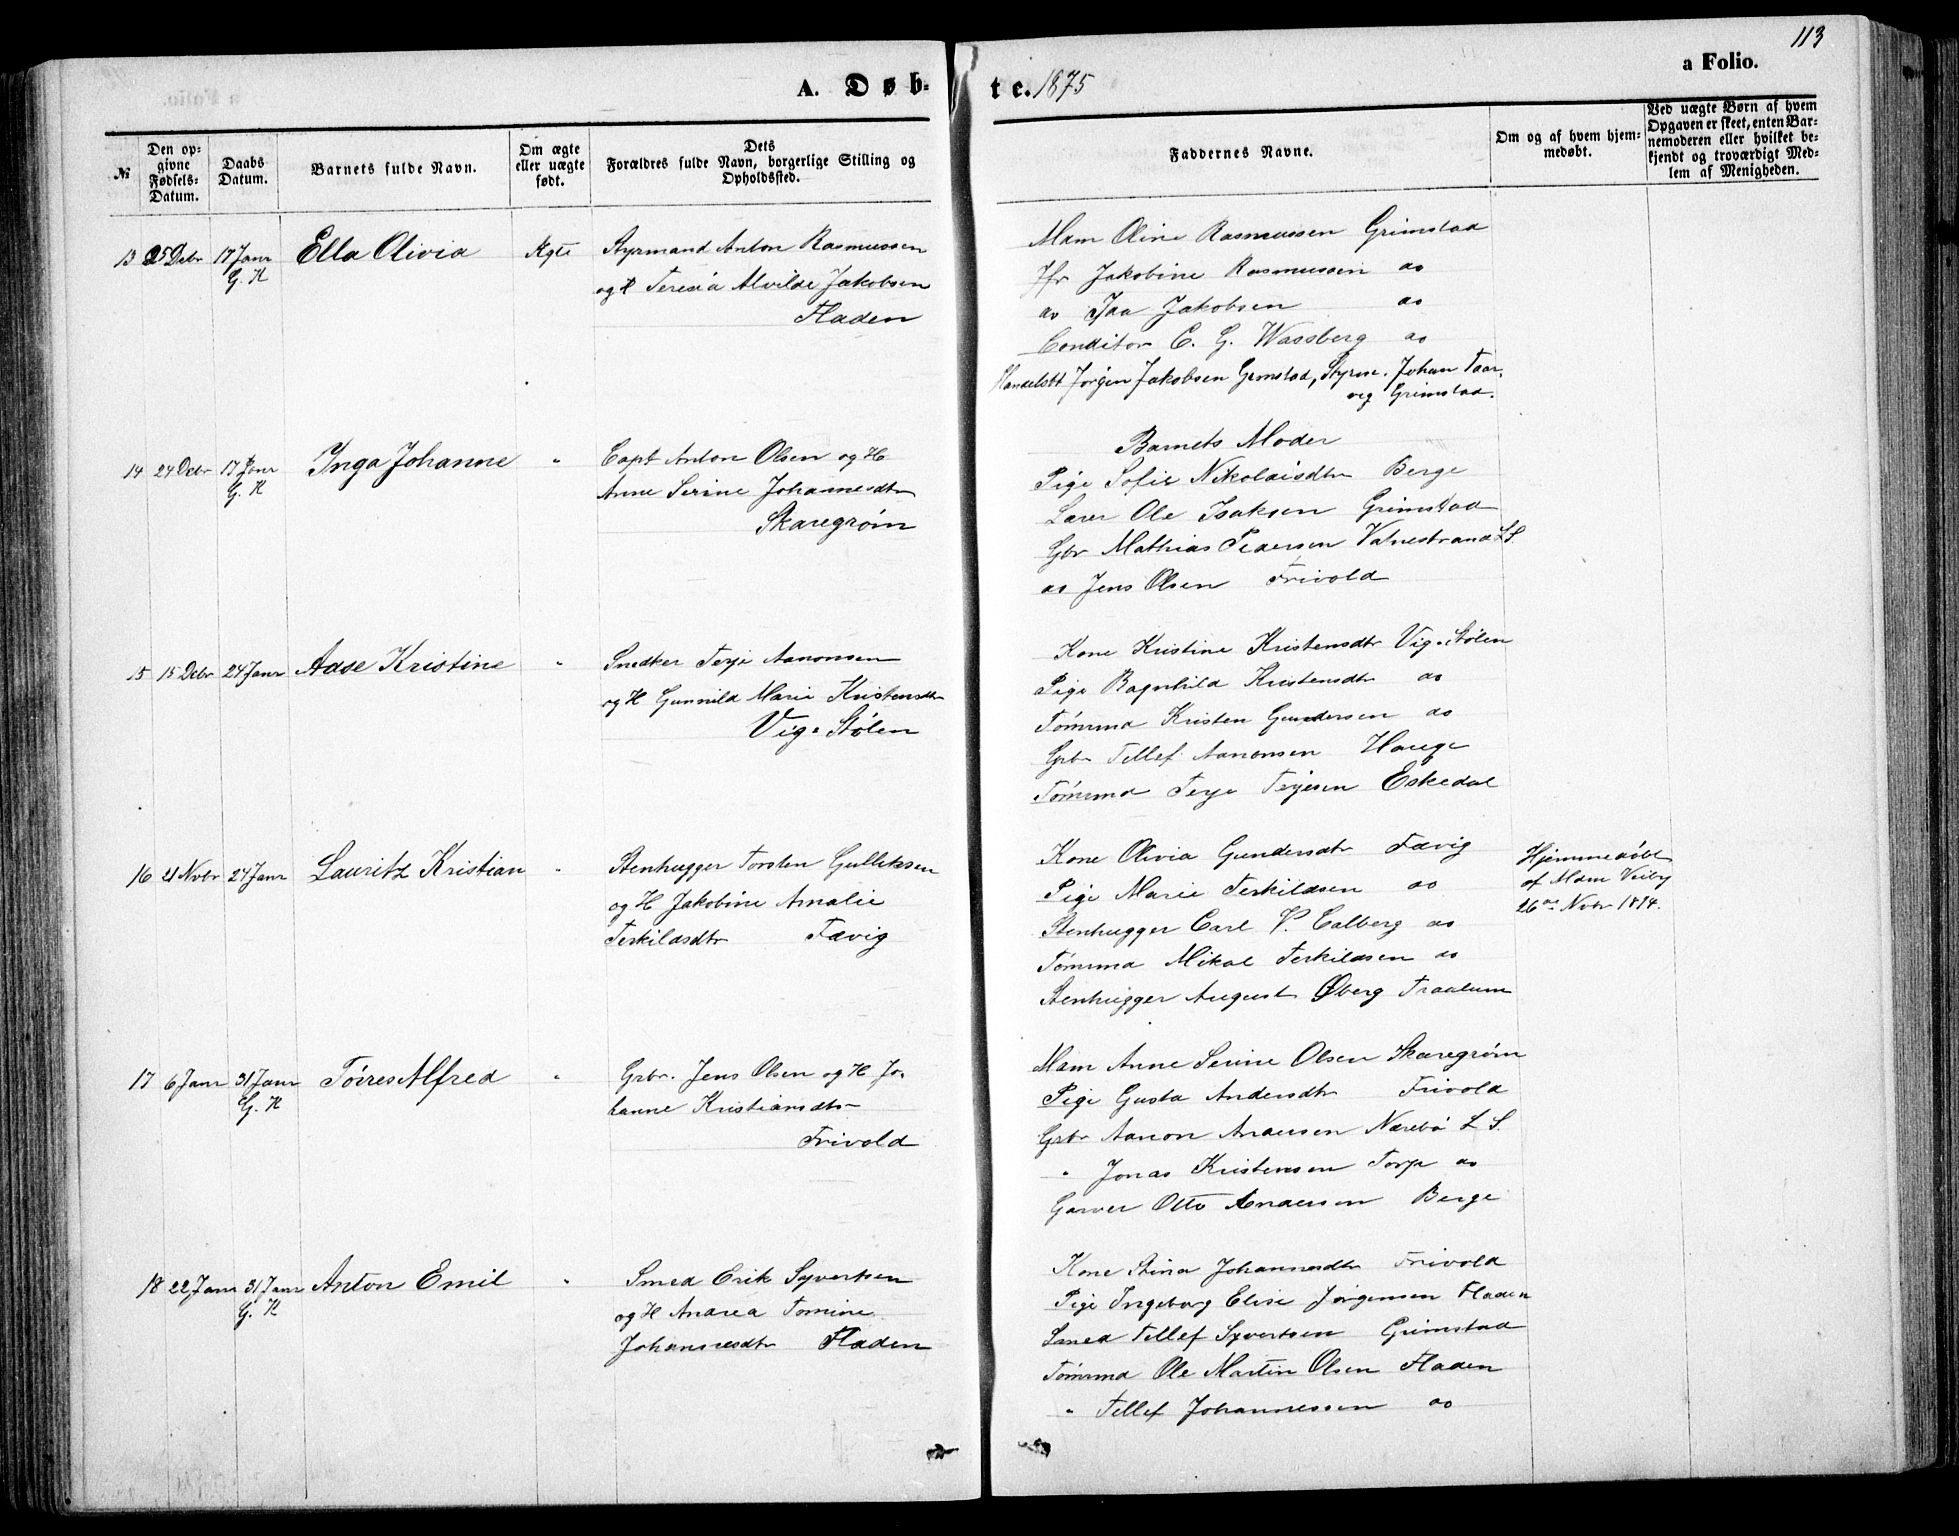 113
a Folio.
A. Døb-
te. 1875
№
Den op-
givne
Fødsels-
Datum.
Daabs
Datum.
Barnets fulde Navn.
Om ægte
eller uægte
født.
Dets
Forældres fulde Navn, borgerlige Stilling og
Opholdssted.
Faddernes Navne.
Om og af hvem hjem-
medøbt.
Ved uægte Børn af hvem
Opgaven er skeet, enten Bar-
nemoderen eller hvilket be-
kjendt og troværdigt Med-
lem af Menigheden.
13 25 Debr 17 Janr Ella Olivia Ægte Styrmand Anton Rasmussen
G. K og H Teresia Alvilde Jakobsen
Fladen
Mam Oline Rasmussen Grimstad
Jfr Jakobine Rasmussen do
do Jakobsen do
Conditor C. G. Wassberg do
Handelsbt Jørgen Jakobsen Grmstad, Styrm. Johan Taar-
vig Grimstad.
14 24 Debr 17 Janr Inga Johanne " Capt Anton Olsen og H
G. K Anne Serine Johannesdtr
Skaregrøm
Barnets Moder
Pige Sofie Nikolaisdtr Berge
Lærer Ole Isaksen Grimstad
Gbr Mathias Pedersen Vatnestrand L S.
do Jens Olsen Frivold
15 15 Debr 24 Janr Aase Kristine " Snedker Terje Aanonsen
og H Gunnild Marie Kristensdtr
Vig. Stølen
Kone Kristine Kristensdtr Vig. Stølen
Pige Ragnhild Kristensdtr do
Tømmd Kristen Gundersen do
Grbr Tellef Aanonsen Hauge
Tømmd Terje Terjesen Eskedal
16 21 Novbr 24 Janr Lauritz Kristian " Stenhugger Torsten Gulliksen
og H Jakobine Amalie
Terkildsdtr Fævig
Kone Olivia Gundersdtr Fævig
Pige Marie Terkildsen do
Stenhugger Carl V. Calberg do
Tømmd Mikal Terkildsen do
Stenhugger August Øberg Traalum
Hjemmedøbt
af Mam Veiby
26de Novbr 1874.
17 6 Janr 31 Janr Tøires Alfred " Grbr. Jens Olsen og H Jo-
G. K hanne Kristiansdtr
Frivold
Mam Anne Serine Olsen Skaregrøm
Pige Gusta Andersdtr Frivold
Grbr Aanon Andersen Nærebø L S.
" Jonas Kristensen Torp do
Garver Otto Andersen Berge
18 22 Janr 31 Janr Anton Emil " Smed Erik Syvertsen
G. K og H Andrea Tomine
Johannesdtr Fladen
Kone Stina Johannesdtr Frivold
Pige Ingeborg Elise Jørgensen Fladen
Smed Tellef Syvertsen Grimstad
Tømmd Ole Martin Olsen Fladen
" Tellef Johannessen do